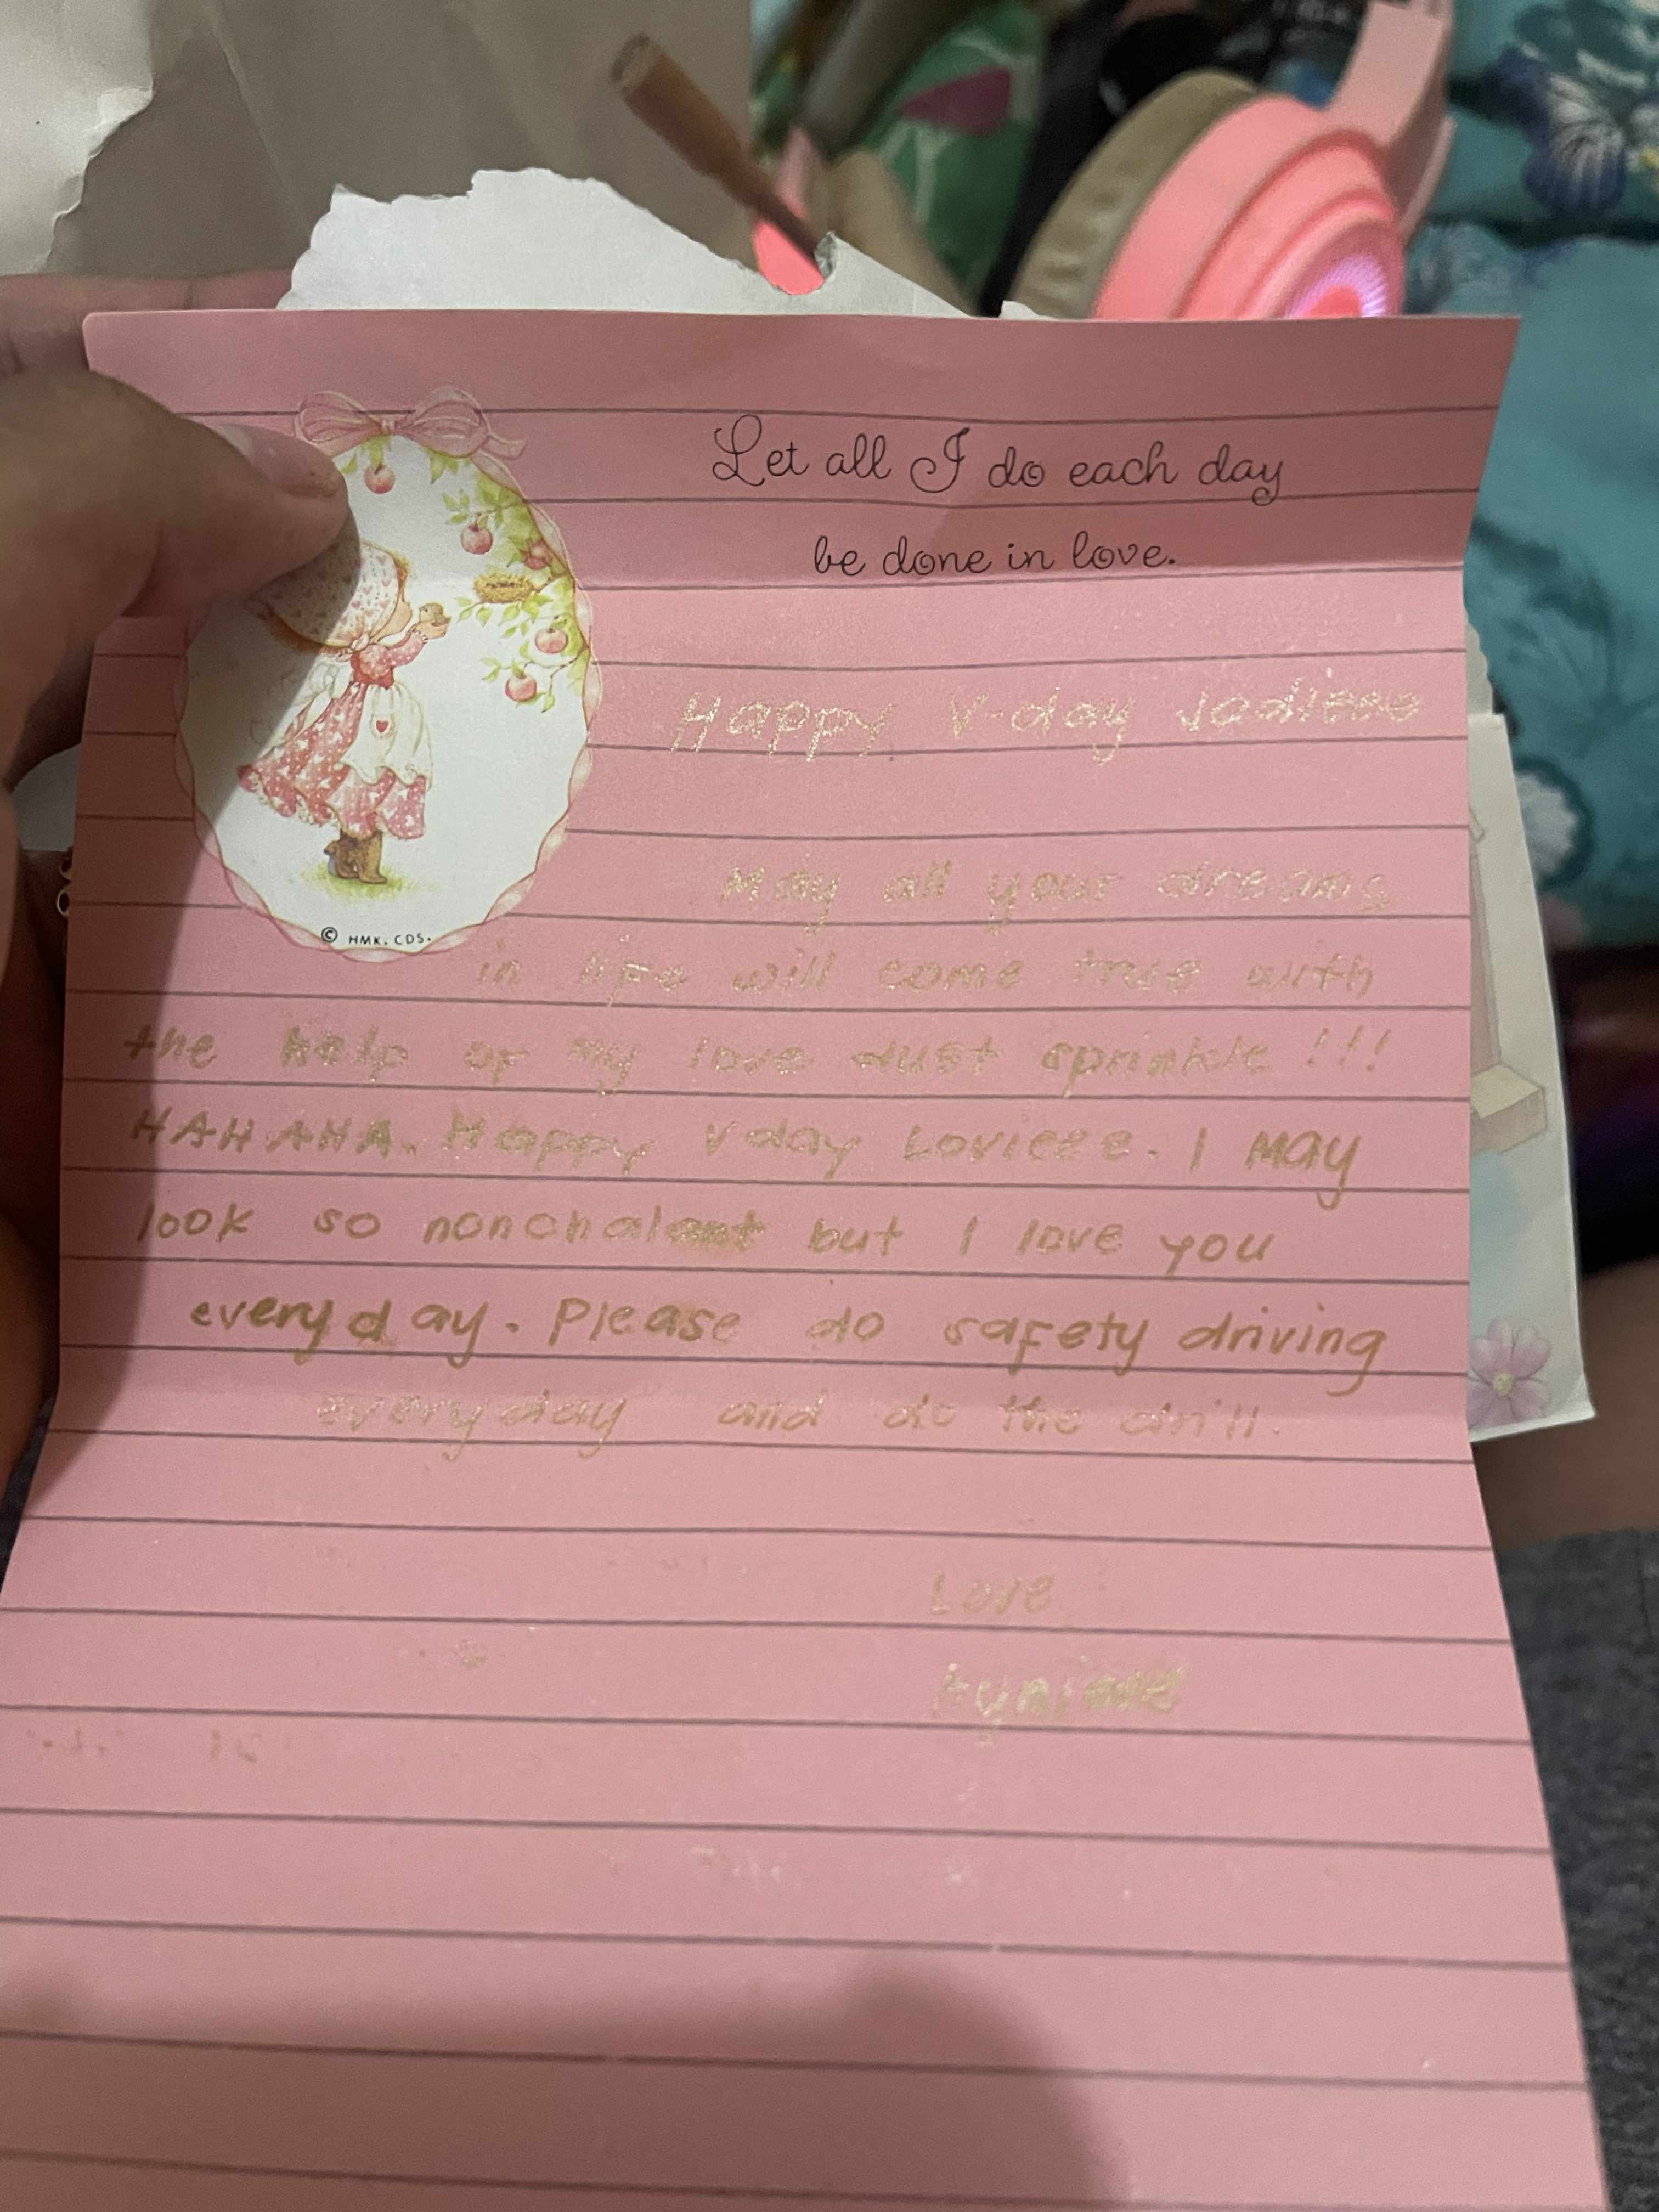 Let all I do each day
be done in love.
Happy V-day Jodieee
May all your dreams
© HMK. CDS.
in life will come true with
the help of my love dust sprinkle!!!
HAHAHA. Happy Vday Lovieee. I May
look so nonchalant but I love you
everyday. Please do safety driving
everyday and do the drill.
Love,